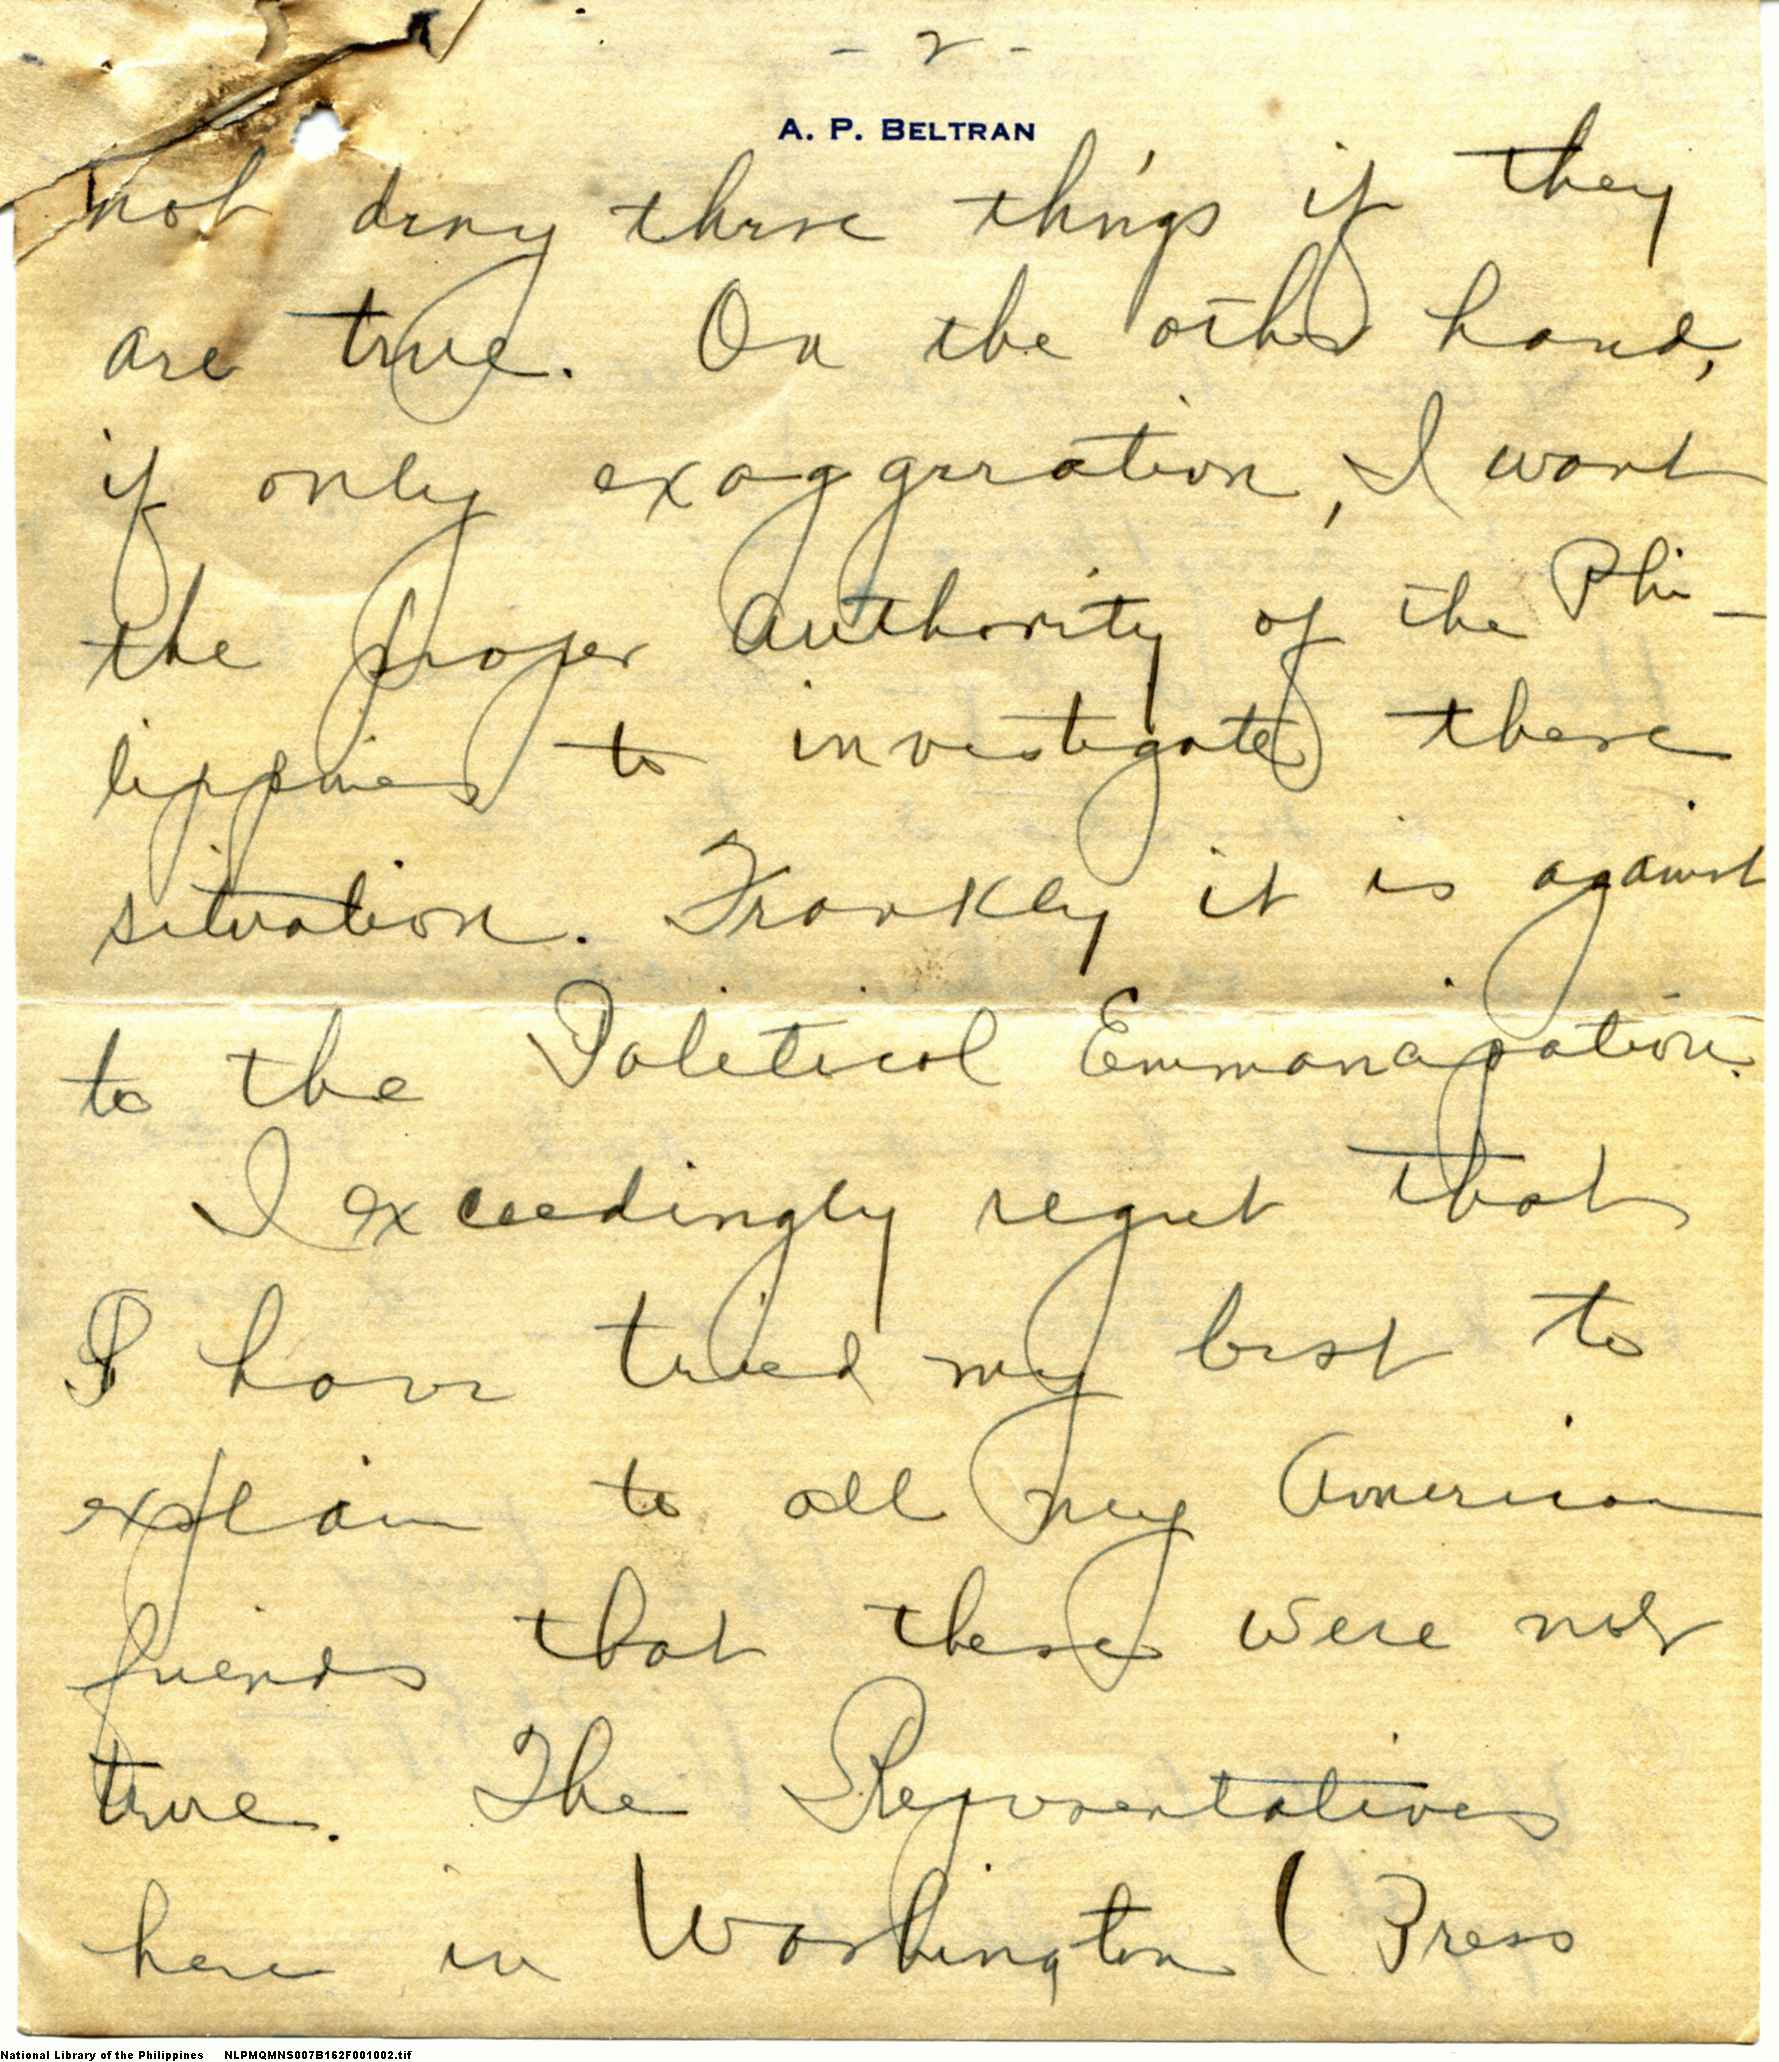 - 2 -
A. P. BELTRAN
not deny these things if they
are true. On the other hand,
if only exaggeration, I want
the proper authority of the Phi-
lippines to investigate these
situation. Frankly it is against
to the Political Emmanapation.
I exceedingly regret that
I have tried my best to
explain to all my American
friends that these were not
true. The Representatives
here in Washington (Press
National Library of the Philippines NLPMQMNS007B162F001002.tif